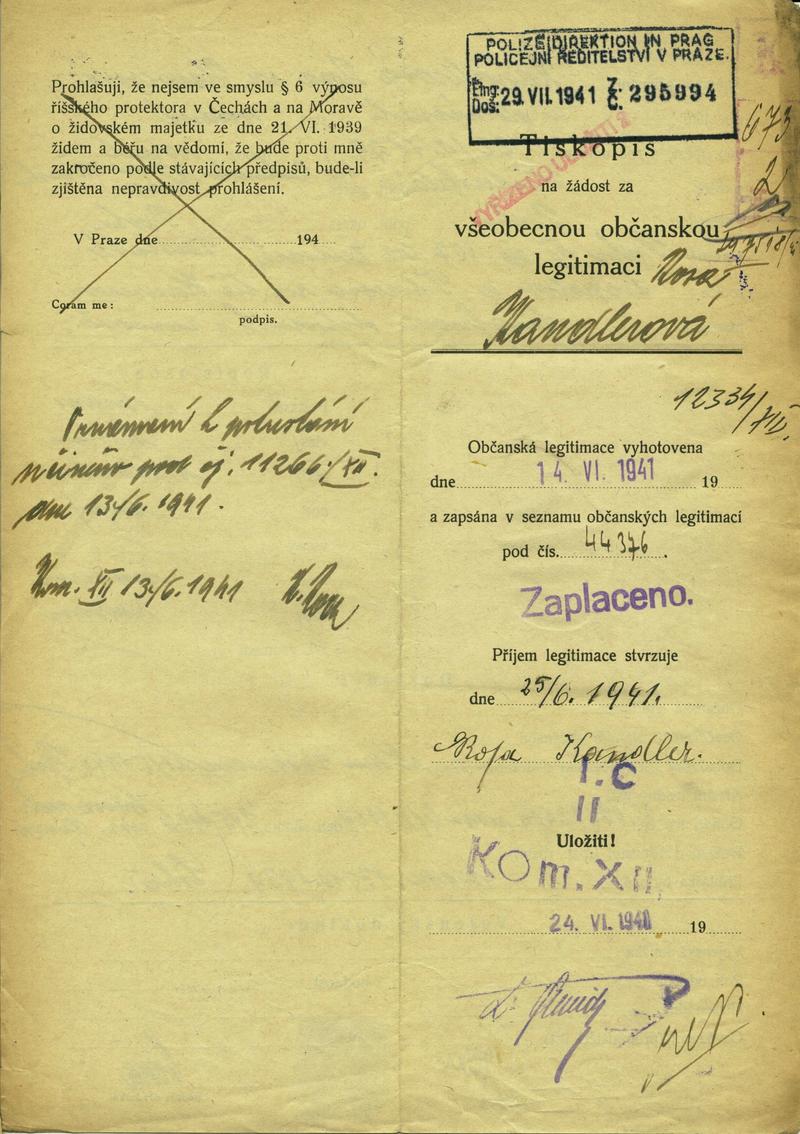 Prohlašuji, že nejsem ve smyslu § 6 výnosu
říšského protektora v Čechách a na Moravě
o židovském majetku ze dne 21. VI. 1939
židem a béřu na vědomí, že bude proti mně
zakročeno podle stávajících předpisů, bude-li
zjištěna nepravdivost prohlášení.
V Praze dne 194
Coram me:
podpis.
pod čj. 11266/XII.
dne 13/6. 1941.
Kom. XII 13/6. 1941
POLIZEIDIREKTION IN PRAG
POLICEJNÍ ŘEDITELSTVÍ V PRAZE.
Eing. Doš: 29. VII. 1941 Z. Č. 295994
673
2
Tiskopis
na žádost za
všeobecnou občanskou
legitimaci Rosa
Kandlerová
12334/XII.
Občanská legitimace vyhotovena
dne 14. VI. 1941 19
a zapsána v seznamu občanských legitimací
pod čís. 44376.
Zaplaceno.
Příjem legitimace stvrzuje
dne 25/6. 1941.
Rosa Kandler.
I. C
II
Uložiti!
Kom. XII
24. VI. 1941 19